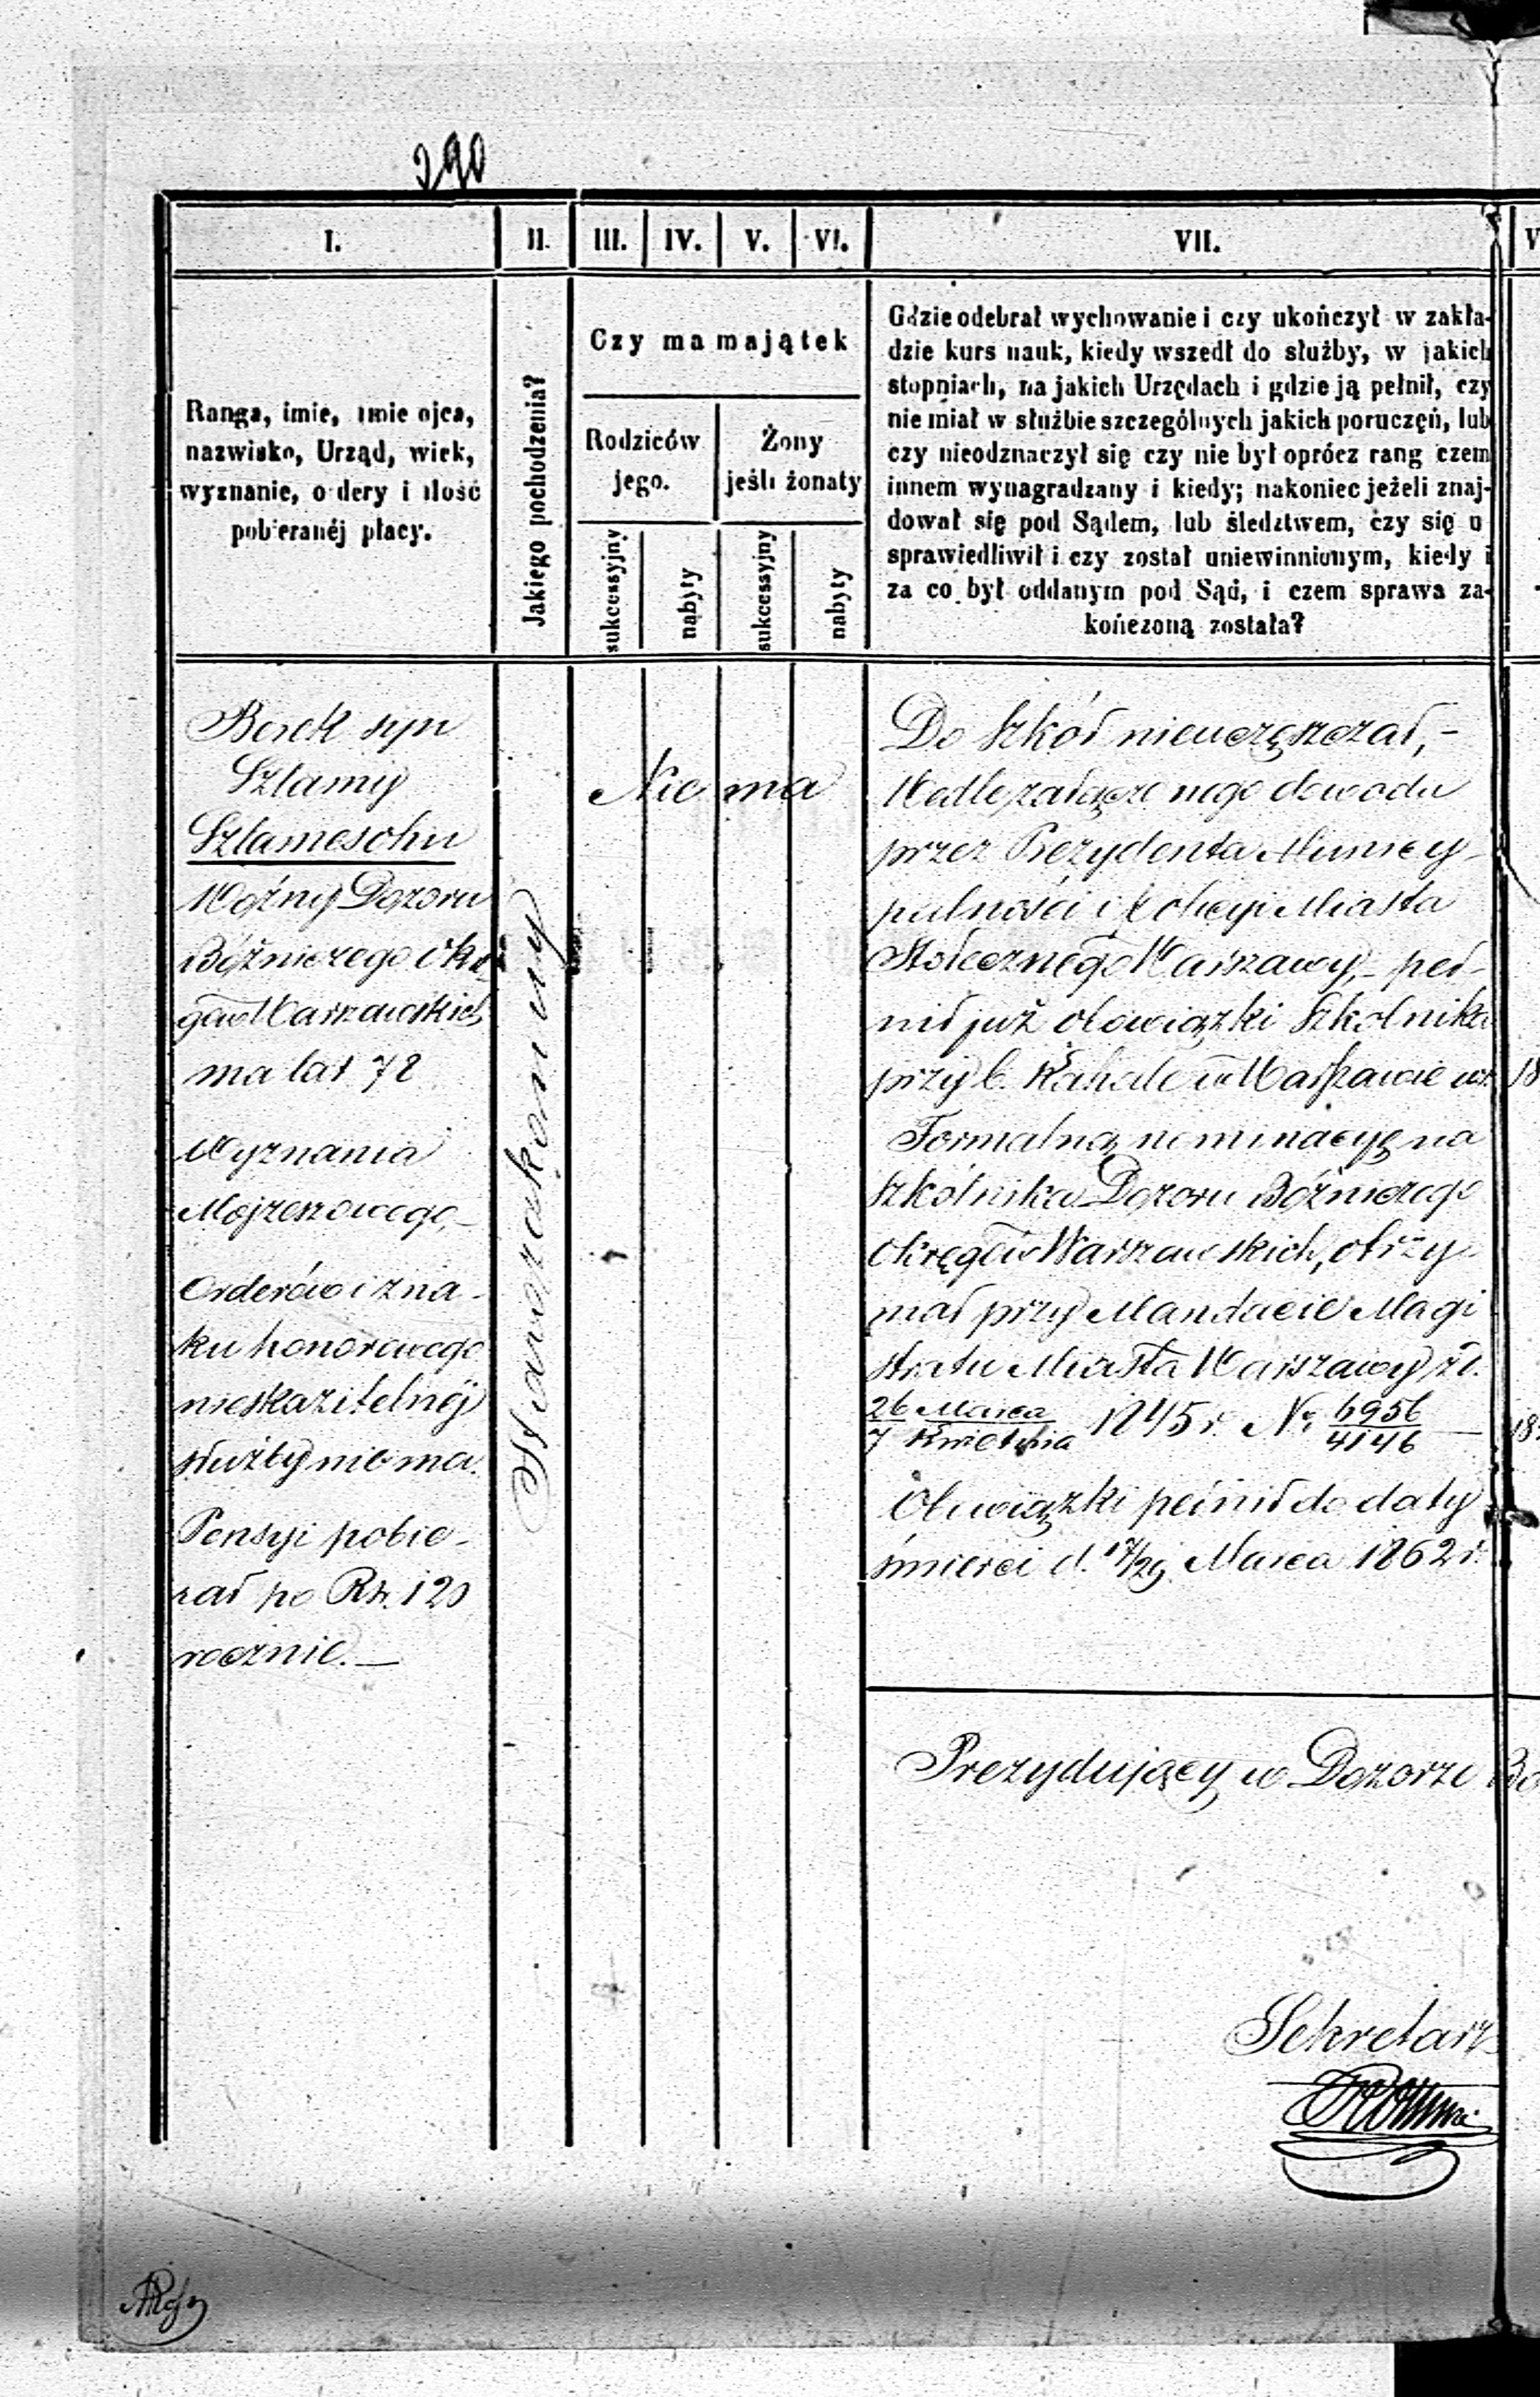 290
I.
II.
III.
IV.
V.
VI.
VII.
V
Ranga, imie, imie ojca,
nazwisko, Urząd, wiek,
wyznanie, ordery i ilość
pobieranéj płacy.
Jakiego pochodzenia?
Czy ma majątek
Rodziców
jego.
Żony
jeśli żonaty
sukcessyjny
nabyty
sukcessyjny
nabyty
Gdzie odebrał wychowanie i czy ukończył w zakła-
dzie kurs nauk, kiedy wszedł do służby, w jakich
stopniach, na jakich Urzędach i gdzie ją pełnił, czy
nie miał w służbie szczególnych jakich poruczeń, lub
czy nieodznaczył się czy nie był oprócz rang czem
innem wynagradzany i kiedy; nakoniec jeżeli znaj-
dował się pod Sądem, lub śledztwem, czy się u
sprawiedliwił i czy został uniewinnionym, kiedy i
za co był oddanym pod Sąd, i czem sprawa za-
kończoną została?
Berek syn
Szlamy
Szlamesohn
Woźny Dozoru
Bóżniczego Okrę
gów Warszawskich
ma lat 72
Wyznania
Mojżeszowego,
Orderów i zna-
ku honorowego
nieskazitelnéj
służby niema.
Pensyi pobie-
rał po Rs. 120
rocznie.—
Starozakonny
Nie ma
Do Szkół nieuczęszczał,-
Wedle załączonego dowodu
przez Prezydenta Municy-
palności i Policyi Miasta
Stołecznego Warszawy,- peł-
nił już obowiązki Szkolnika
przy b. Kahale w Warszawie w r. 18
Formalną nominacyę na
Szkólnika Dozoru Bóżniczego
Okręgów Warszawskich, otrzy-
mał przy Mandacie Magi
stratu Miasta Warszawy z d.
26 Marca / 7 Kwietnia 1845 r. No 6956/4146 — 18
Obowiązki pełnił do daty
śmierci d. 17/29 Marca 1862 r.
Prezydujący w Dozorze Bó
Sekretarz